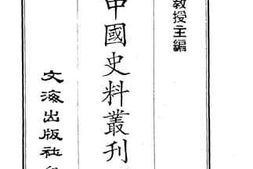 教授主編
中國史料叢刊
文海出版社